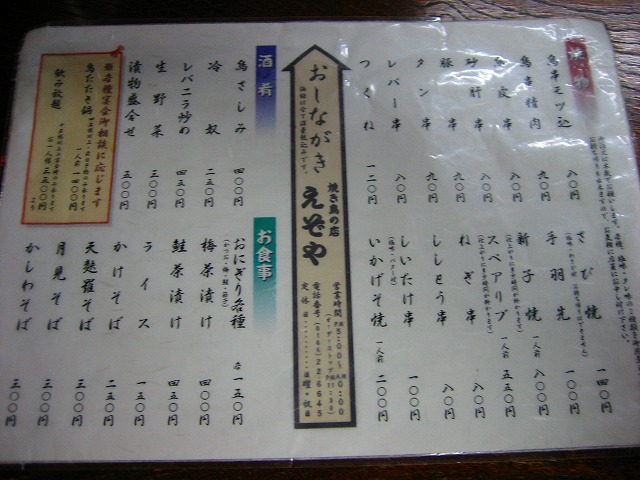 焼物
鳥串モツ込 八〇円
鳥串精肉 九〇円
鳥皮串
砂肝串 九〇円
豚串 九〇円
タン串 九〇円
レバー串 八〇円
つくね 一二〇円
さび焼 一四〇円
手羽先 一〇〇円
新子焼 一人前
スペアリブ 一人前 五五〇円
ねぎ串 八〇円
ししとう串 八〇円
しいたけ串 一〇〇円
いかげそ焼 一人前 二〇〇円
おしながき
価格は全て消費税込みです。
焼き鳥の店
えぞや
営業時間
5:00〜10:00
電話番号(0144)22-6645
定休日 日曜・祝日
酒肴
鳥さしみ 四〇〇円
冷奴 二五〇円
レバニラ炒め 四五〇円
生野菜 三五〇円
漬物盛合せ 五〇〇円
お食事
おにぎり各種 各一五〇円
梅茶漬け 四〇〇円
鮭茶漬け 四五〇円
ライス 一五〇円
かけそば 二五〇円
天麩羅そば 三〇〇円
月見そば 三〇〇円
かしわそば 三〇〇円
※各種宴会御相談に応じます
鳥たたき鍋
一人前 一四〇〇円
飲み放題
お一人様 三五〇〇円より